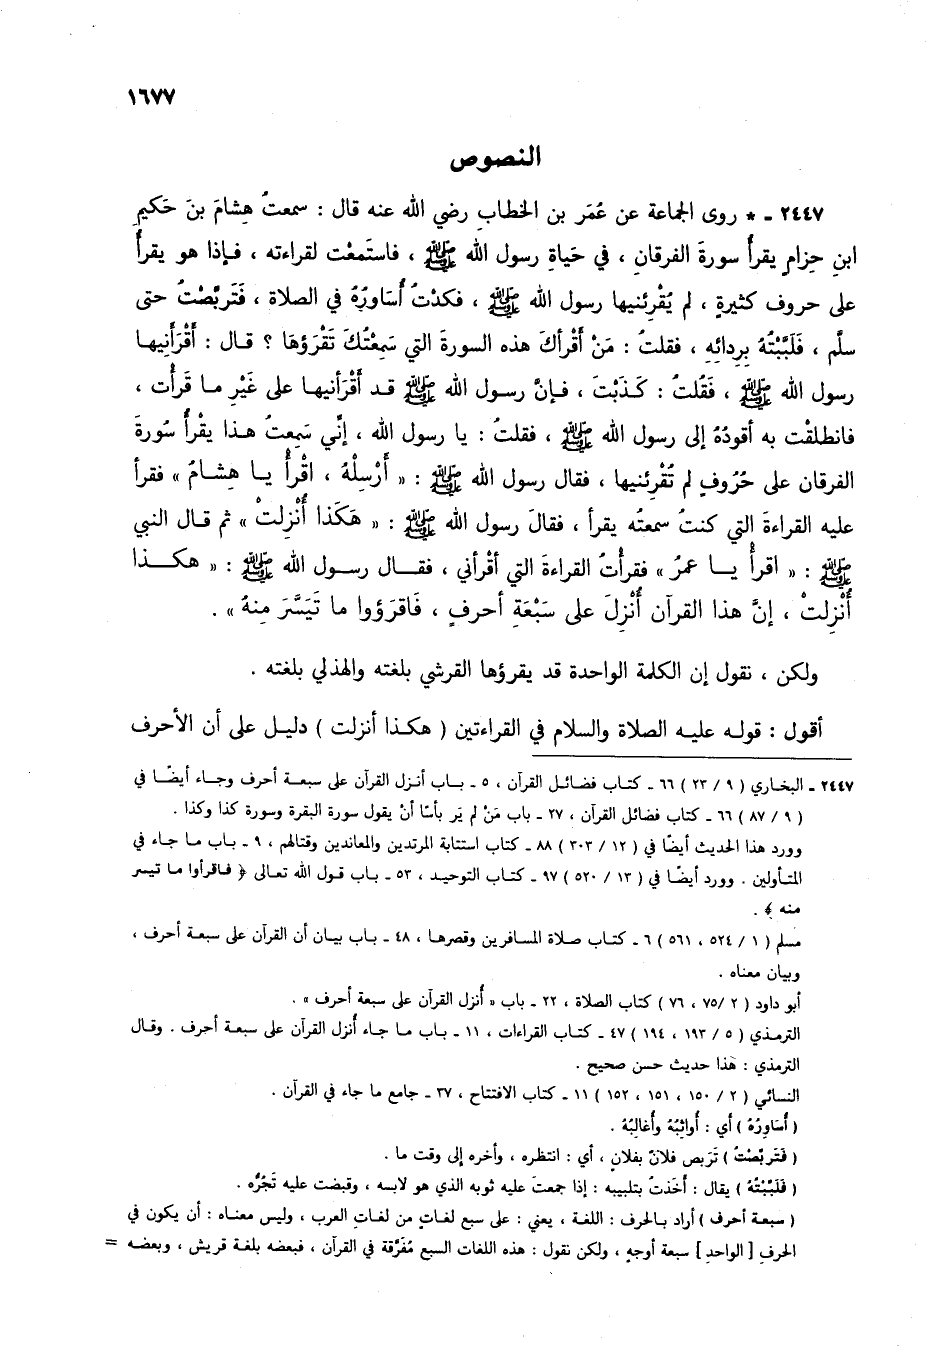 ١٦٧٧
النصوص
٢٤٤٧ ـ * روى الجماعة عن عُمَر بن الخطاب رضي الله عنه قال : سمعتُ هِشامَ بنَ حَكيمِ
ابنِ حِزامٍ يقرأُ سورةَ الفرقان ، في حَياةِ رسول الله ﷺ ، فاستَمعْت لقراءته ، فإذا هو يقرأُ
على حروف كثيرةٍ ، لم يُقْرِئنيها رسول الله ﷺ ، فكدْتُ أُسَاوِرُهُ في الصلاة ، فَتَربَّصْتُ حتى
سلَّم ، فَلَبَّبْتُهُ بِردائِهِ ، فقلتُ : مَنْ أَقْرأكَ هذه السورةَ التي سَمِعْتُكَ تَقْرَؤهَا ؟ قال : أَقْرَأَنِيها
رسول الله ﷺ ، فَقُلتُ : كَذَبْتَ ، فإنَّ رسول الله ﷺ قد أَقْرَأنيها على غَيْرِ ما قَرأت ،
فانطلقْت به أقودُهُ إلى رسول الله ﷺ ، فقلتُ : يا رسول الله ، إنِّي سَمِعتُ هذا يقْرأُ سُورةَ
الفرقان على حُرُوفٍ لم تُقْرِئنيها ، فقال رسول الله ﷺ : « أَرْسِلْهُ ، اقْرأْ يا هِشامُ » فقرأ
عليه القراءةَ التي كنتُ سمعتُه يقرأ ، فقالَ رسول الله ﷺ : « هَكَذا أُنْزِلتْ » ثم قال النبي
ﷺ : « اقرأْ يا عمرُ » فقرأتُ القراءةَ التي أقْرأني ، فقال رسول الله ﷺ : « هكذا
أُنْزِلتْ ، إنَّ هذا القرآن أُنْزِلَ على سَبْعَةِ أحرفٍ ، فَاقرَؤوا ما تَيَسَّرَ مِنهُ » .
ولكن ، نقول إن الكلمة الواحدة قد يقرؤها القرشي بلغته والهذلي بلغته .
أقول : قوله عليه الصلاة والسلام في القراءتين ( هكذا أنزلت ) دليل على أن الأحرف
٢٤٤٧ ـ البخاري ( ٩ / ٢٣ ) ٦٦ ـ كتاب فضائل القرآن ، ٥ ـ باب أنزل القرآن على سبعة أحرف وجاء أيضًا في
( ٩ / ٨٧ ) ٦٦ ـ كتاب فضائل القرآن ، ٢٧ ـ باب مَنْ لم يَر بأسًا أنْ يقول سورة البقرة وسورة كذا وكذا .
وورد هذا الحديث أيضًا في ( ١٢ / ٣٠٣ ) ٨٨ ـ كتاب استتابة المرتدين والمعاندين وقتالهم ، ٩ ـ باب ما جاء في
المتأولين . وورد أيضًا في ( ١٣ / ٥٢٠ ) ٩٧ ـ كتاب التوحيد ، ٥٣ ـ باب قول الله تعالى ﴿ فاقرأوا ما تيسر
منه ﴾ .
مسلم ( ١ / ٥٢٤ ، ٥٦١ ) ٦ ـ كتاب صلاة المسافرين وقصرها ، ٤٨ ـ باب بيان أن القرآن على سبعة أحرف ،
وبيان معناه .
أبو داود ( ٢ /٧٥ ، ٧٦ ) كتاب الصلاة ، ٢٢ ـ باب « أُنزل القرآن على سبعة أحرف » .
الترمذي ( ٥ / ١٩٣ ، ١٩٤ ) ٤٧ ـ كتاب القراءات ، ١١ ـ باب ما جاء أُنزل القرآن على سبعة أحرف . وقال
الترمذي : هَذا حديث حسن صحيح .
النسائي ( ٢ / ١٥٠ ، ١٥١ ، ١٥٢ ) ١١ ـ كتاب الافتتاح ، ٣٧ ـ جامع ما جاء في القرآن .
( أُسَاوِرُهُ ) أي : أُواثِبُهُ وأُغالِبُهُ .
( فَتَربَّصْتُ ) تَرَبص فلانٌ بفلانٍ ، أي : انتظره ، وأخره إلى وقت ما .
( فَلَبَّبْتُهُ ) يقال : أَخَذتُ بتلبيبه : إذا جمعتَ عليه ثوبه الذي هو لابسه ، وقبضت عليه تَجُرُّه .
( سبعة أحرف ) أراد بالحرف : اللغة ، يعني : على سبع لغاتٍ من لغاتِ العرب ، وليس معناه : أن يكون في
الحرفِ [ الواحدِ ] سبعة أوجهٍ ، ولكن نقول : هذه اللغات السبع مُفَرَّقة في القرآن ، فبعضه بلغة قريش ، وبعضه =